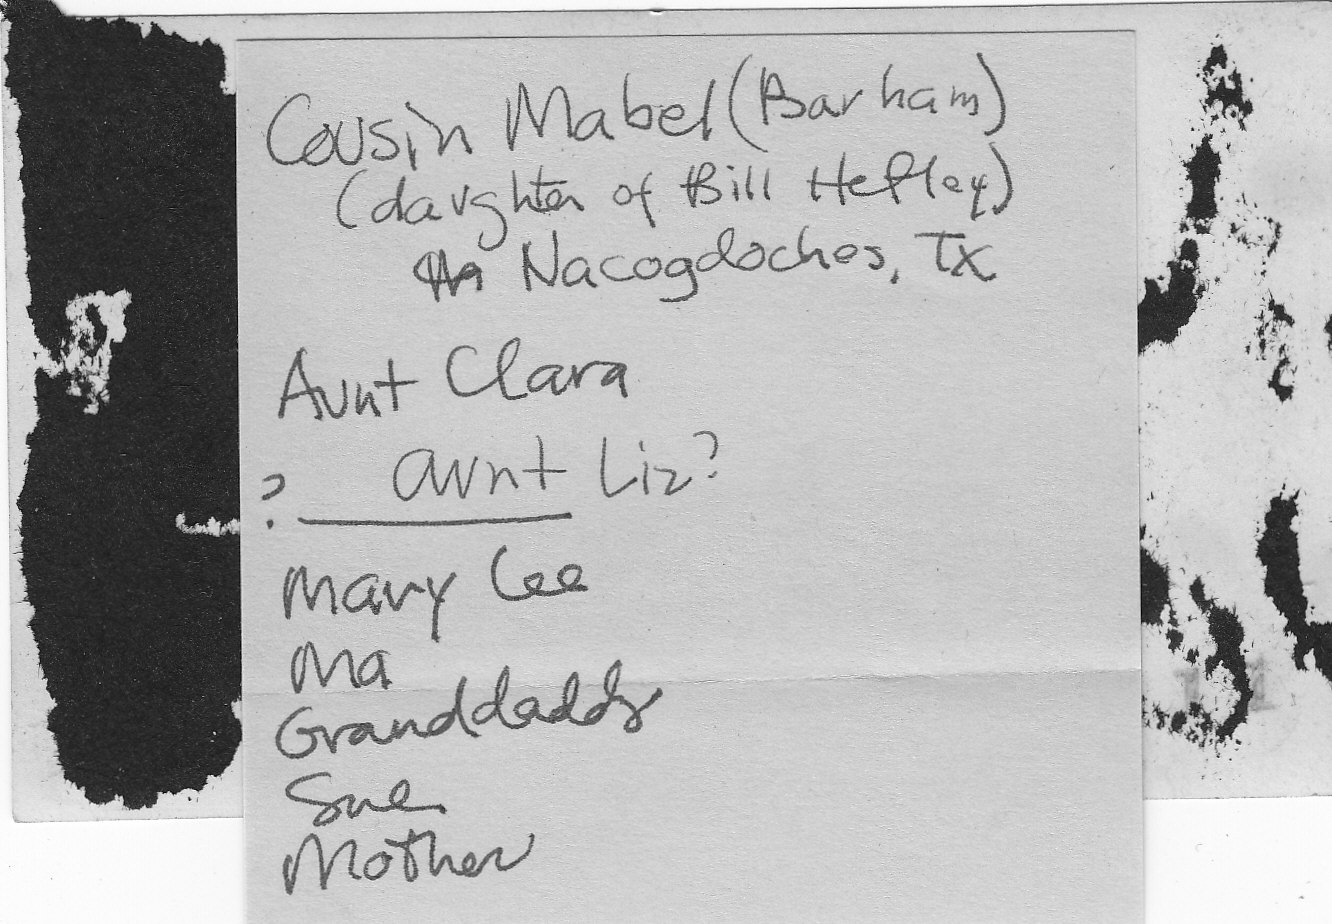 Cousin Mabel (Barham)
(daughter of Bill Hefley)
Nacogdoches, Tx
Aunt Clara
aunt Liz?
?
Mary Lee
Ma
Granddaddy
Sue
Mother